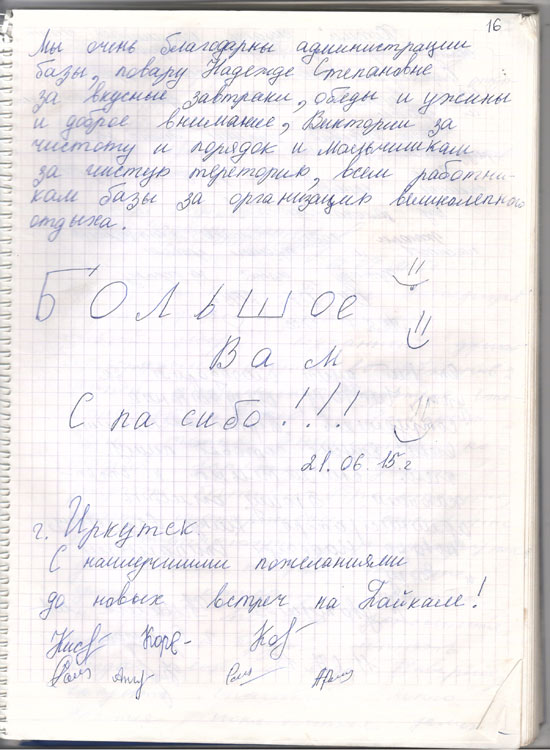 16
Мы очень благодарны администрации
базы, повару Надежде Степановне
за вкусные завтраки, обеды и ужины
и доброе внимание, Виктории за
чистоту и порядок и мальчишкам
за чистую територию, всем работни-
кам базы за организацию великолепного
отдыха.
Большое
Вам
Спасибо!!!
21.06.15г
г. Иркутск.
С наилучшими пожеланиями
до новых встреч на Байкале!